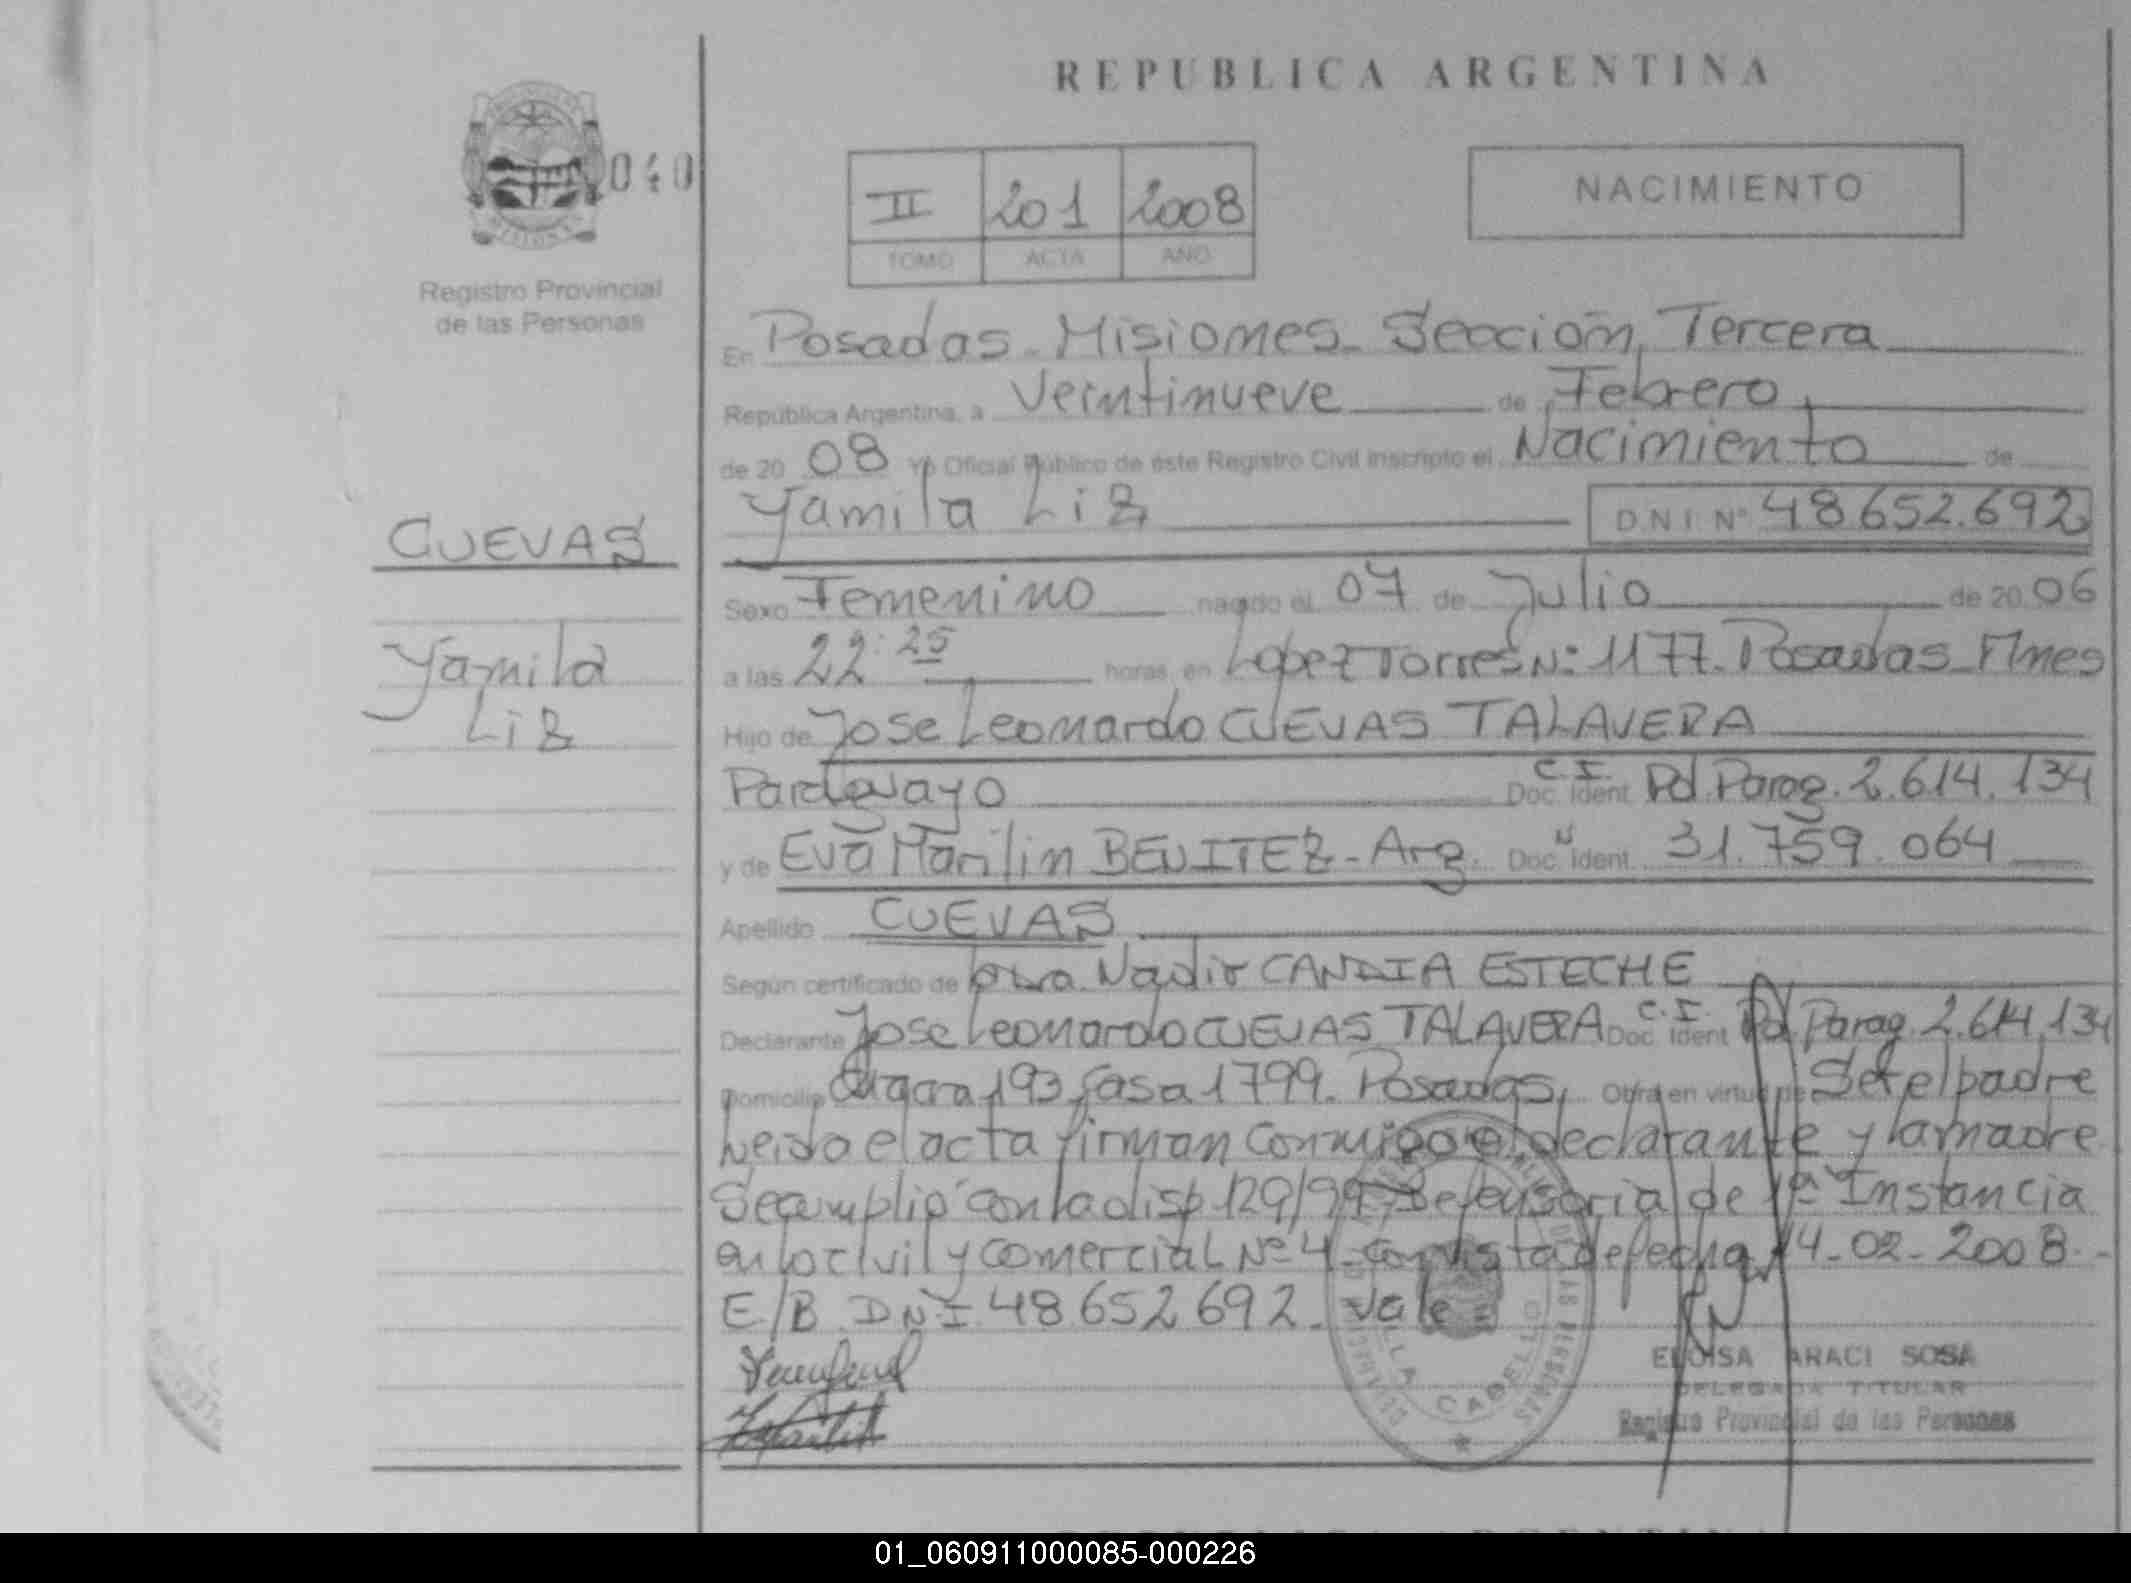 REPUBLICA ARGENTINA
040
II 201 2008
TOMO ACTA AÑO
NACIMIENTO
Registro Provincial
de las Personas
CUEVAS
Yamila
Liz
En Posadas - Misiones - Sección Tercera
República Argentina, a Veintinueve de Febrero
de 20 08 Yo Oficial Público de éste Registro Civil inscripto el Nacimiento de
Yamila Liz D N I Nº 48652.692
Sexo Femenino nacido el 07 de Julio de 20 06
a las 22:25 horas, en Lopez Torres Nº: 1177. Posadas Mnes
Hijo de Jose Leonardo CUEVAS TALAVERA
Paraguayo Doc. Ident. C.I. Pol. Parag. 2.614.134
y de Eva Marilin BENITEZ - Arg. Doc. Ident. 31.759.064
Apellido CUEVAS
Según certificado de Obra. Nadir CANDIA ESTECHE
Declarante Jose Leonardo CUEVAS TALAVERA Doc. Ident C.I. Pol Parag. 2.614.134
Domicilio 193 Casa 1799. Posadas, Obra en virtud de Ser el padre
Leida el acta firman conmigo el declarante y la madre
Se cumplió con la disp 129/99 Defensoria de 1ª Instancia
en lo civil y comercial Nº 4 - con vista de fecha 14-02-2008.-
E/B DNI 48652692. Vale
CABELLO
ELOISA ARACI SOSA
DELEGADA TITULAR
Registro Provincial de las Personas
01_060911000085-000226